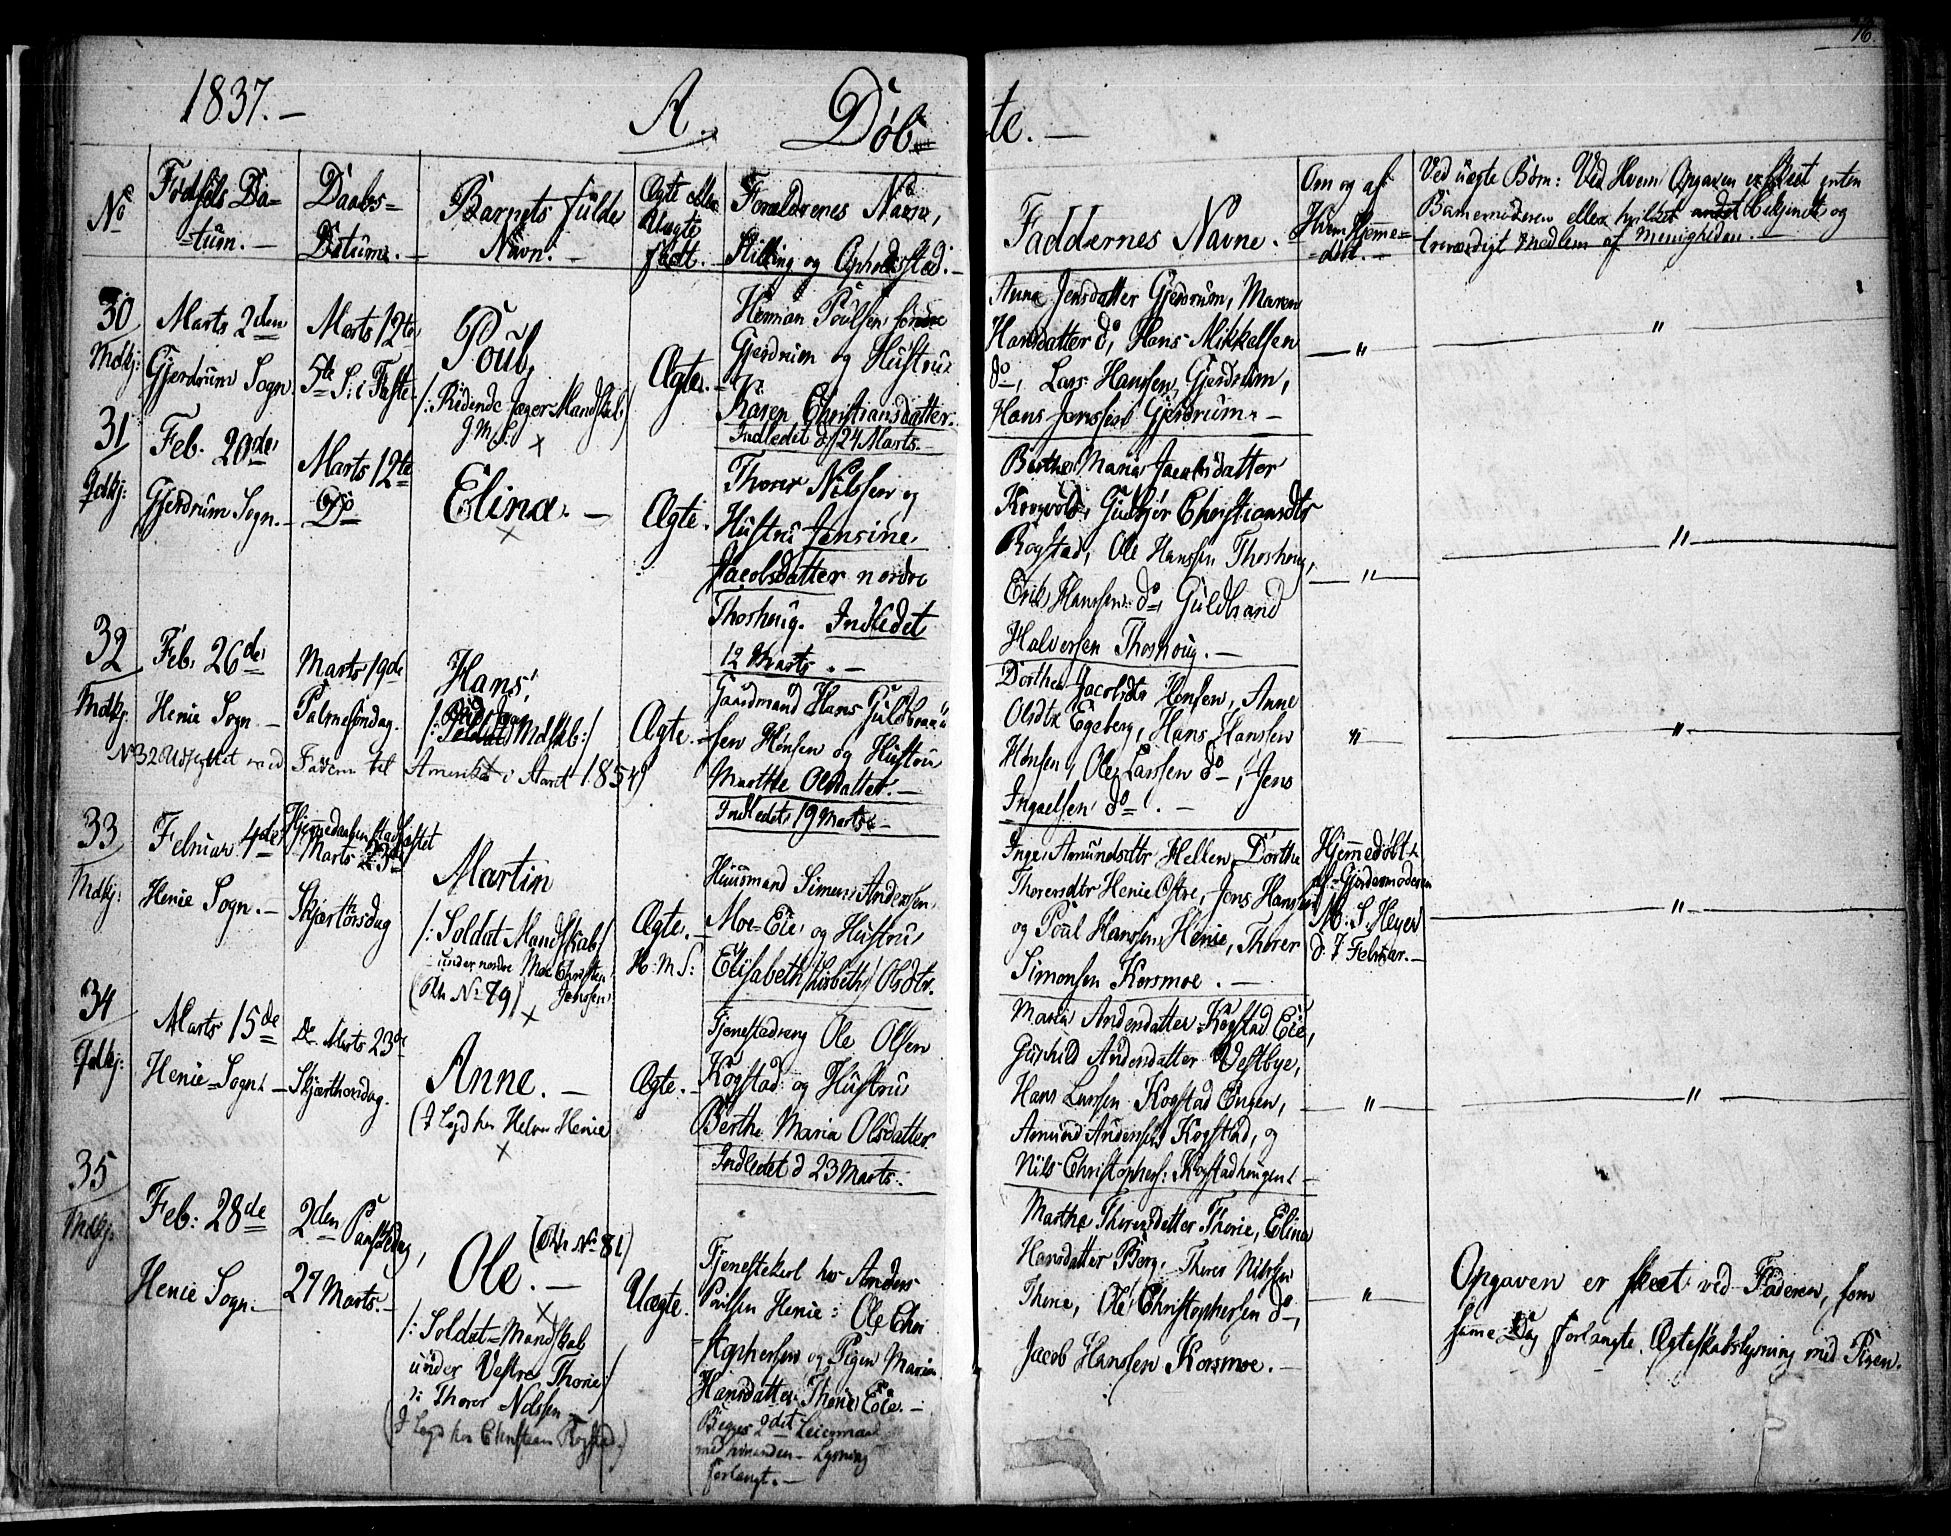 16.
1837. –
A.
Døb=
te. –
No
Fødsels Da=
=tum. –
Daabs=
Datum. –
Barnets fulde
Navn. –
Ægte eller
Uægte
født. –
Forældrenes Navne,
Stilling og Opholdsstæd. –
Faddernes Navne.
Om og af
Hvem Hjemme=
=døbt. –
Ved uægte Børn: Ved Hvem Opgaven er skeet enten
Barnemoderen eller hvilket andet bekjendt og
troværdigt Medlem af Menigheden. –
30
Mdkj:
Marts 2den
Gjerdrum Sogn
Marts 12te
5te S: i Faste
Poul,
/: Ridende Jæger Mandskab/
Ægte. –
Herman Poulsen søndre
Gjerdrum og Hustrue
Karen Christiansdatter.
Indledet d 24 Marts. –
Anne Jensdatter Gjerdrum, Maren
Hansdatter do, Hans Mikkelsen
do, Lars Hanssen Gjerdrum,
Hans Jenssen Gjerdrum. –
– " –
"
31
Qdkj:
Feb. 20de
Gjerdrum Sogn. –
Marts 12te
Do
Elina. –
Ægte.
Thorer Nilssen og
Hustru Jensine
Jacobsdatter nordre
Thoshoug. Indledet
12 Marts. –
Berthe Maria Jacobsdatter
Kongvold, Gulbjør Christiansdtr
Rogstad, Ole Hanssen Thoshoug,
Erik Hanssen do, Guldbrand
Halversen Thoshoug. –
– " –
"
32
Mdkj.
Feb. 26de
Henie Sogn –
Marts 19de
Palmesøndag.
Hans,
Mdskab:/
Ægte. –
Gaardmand Hans Guldbrand
sen Hønsen og Hustru
Marthe Olsdatter. –
Indledet 19 Marts. –
No 32 Udflyttet med Faderen til Amerika i Aaret 1854)
Dorthea Jacobsdtr Hønsen, Anne
Olsdtr Egeberg, Hans Hanssen
Hønsen, Ole Larssen do, Jens
Ingvelsen do. –
"
"
33
Mdkj:
Februar 4de
Henie Sogn. –
Hjemmedaaben stadfæstet
Marts 23de
Skjærtorsdag
Martin
/: Soldat Mandskab/
under nordre Moe Christen
Jenssen
(No 79)
Ægte. –
H: M. S:
Huusmand Simen Andersen
Moe-Eie og Hustru
Elisabeth /Lisbeth/ Olsdtr.
Inge Amundsdtr Hellen, Dorthe
Thorersdtr Henie Østre, Jens Hanssen
og Poul Hanssen Henie, Thorer
Simonsen Korsmoe. –
Hjemmedøbt
af Gjordemoderen
M. S. Heyer
d. 7 Februar. –
"
34
Qdkj:
Marts 15de
Henie-Sogn –
Do Marts 23de
Skjærthorsdag.
Anne. –
(I Lægd hos Helver Henie
Ægte. –
Tjenestedreng Ole Olsen
Kogstad og Hustru
Berthe Maria Olsdatter.
Indledet d 23 Marts.
Maria Andersdatter Kogstad Eie,
Gunhild Andersdatter Vestbye,
Hans Larssen Kogstad Engen,
Amund Anderssen Kogstad, og
Nils Christophers: Kogstadhougen. –
– " –
"
35
Mdkj.
Feb: 28de
Henie Sogn. –
2den Paaskedag,
27 Marts. –
(No 81)
Ole. –
/: Soldat=Mandskab
under Vestre Thorie/
: Thorer Nilssen
(I Lægd hos Christian Rogstad.)
Uægte.
Tjenestekarl hos Anders
Poulsen Henie: Ole Chri
stophersen og Pigen Maria
Hansdatter Thorie Eie. –
Begges 2det Leiermaal
med hinanden – Lysning
forlangt. –
Marthe Thorersdatter Thorie, Elina
Hansdatter Berg, Thorer Nilssen
Thorie, Ole Christophersen do,
Jacob Hanssen Korsmoe. –
– " –
Opgaven er skeet ved Faderen, som
samme Dag forlangte Ægteskabslysning med Pigen.